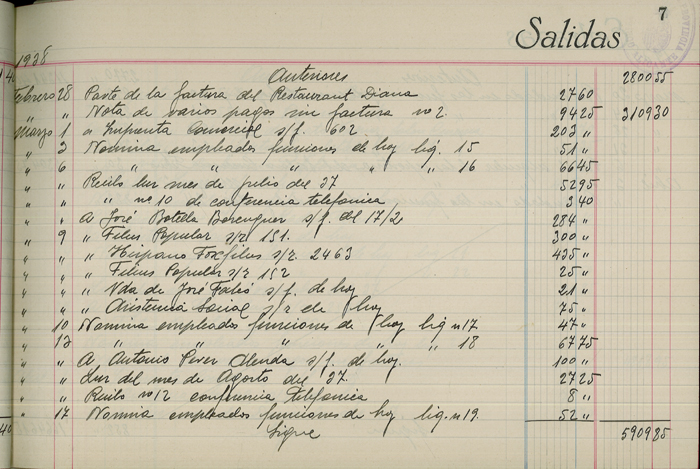 7
Salidas
1938
Anteriores 280055
Febrero 28 Parte de la factura del Restaurant Diana 2760
" " Nota de varios pagos su factura nº 2. 9425 310930
Marzo 1 a Imprenta Comercial s/f. 602 203 "
" 3 Nomina empleados funciones de hoy liq. 15 51 "
" 6 " " " " " 16 6645
" " Recibo luz mes de julio del 37 5295
" " " nº 10 de conferencia telefonica 340
" " A José Botella Berenguer s/f. del 17/2 284 "
" 9 " Films Popular s/r 151. 300 "
" " " Hispano Foxfilms s/r. 2463 435 "
" " " Films Popular s/r 152 25 "
" " " Vda de José s/f. de hoy 21 "
" " " Asistencia Social s/r de hoy 75 "
" 10 Nomina empleados funciones de hoy liq nº 17 47 "
" 13 " " " " " 18 6775
" " A, Antonio Perez Olenda s/f. de hoy. 100 "
" " Luz del mes de Agosto del 37. 2725
" " Recibo nº 12 conferencia telefonica 8 "
" 17 Nomina empleados funciones de hoy liq. n 19. 52 "
Sigue 590985